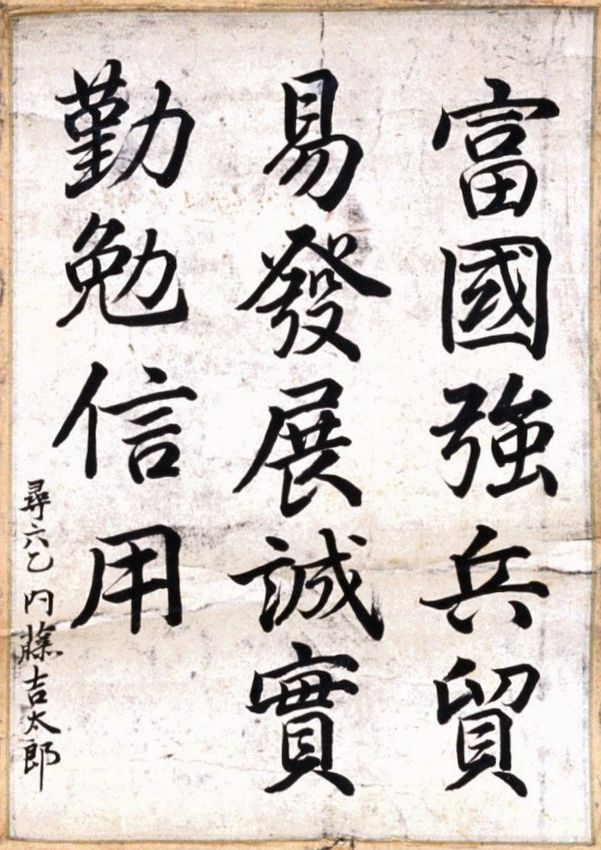 富國強兵貿
易發展誠實
勤勉信用
尋六乙 内藤吉太郎